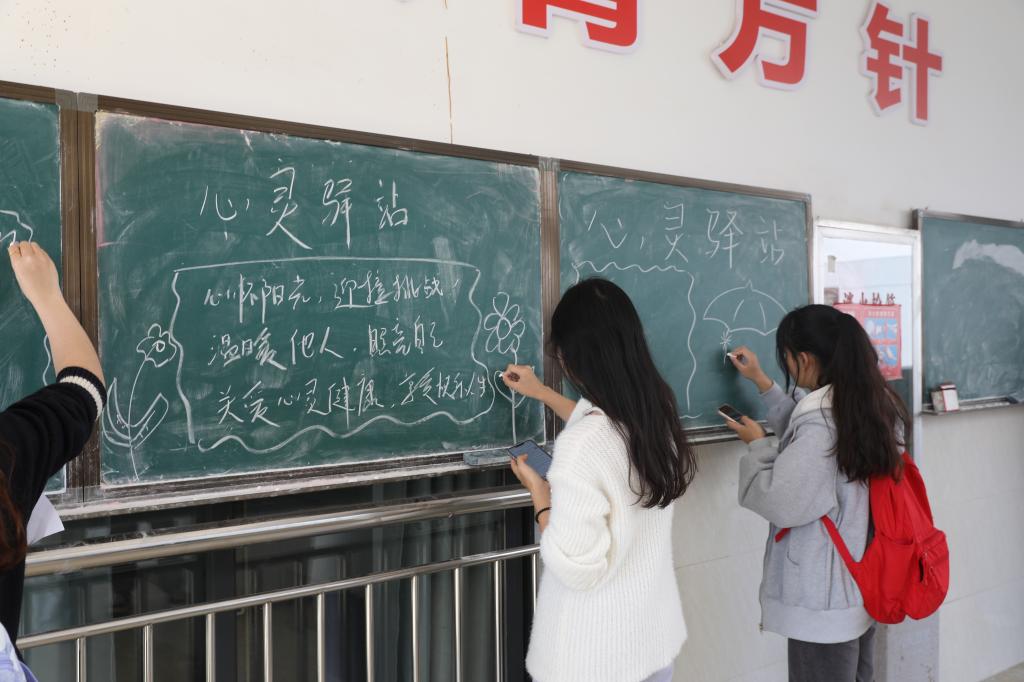 育方针
心灵驿站
心怀阳光，迎接挑战，
温暖他人，照亮自己
关爱心灵健康，享受快乐人生
心灵驿站